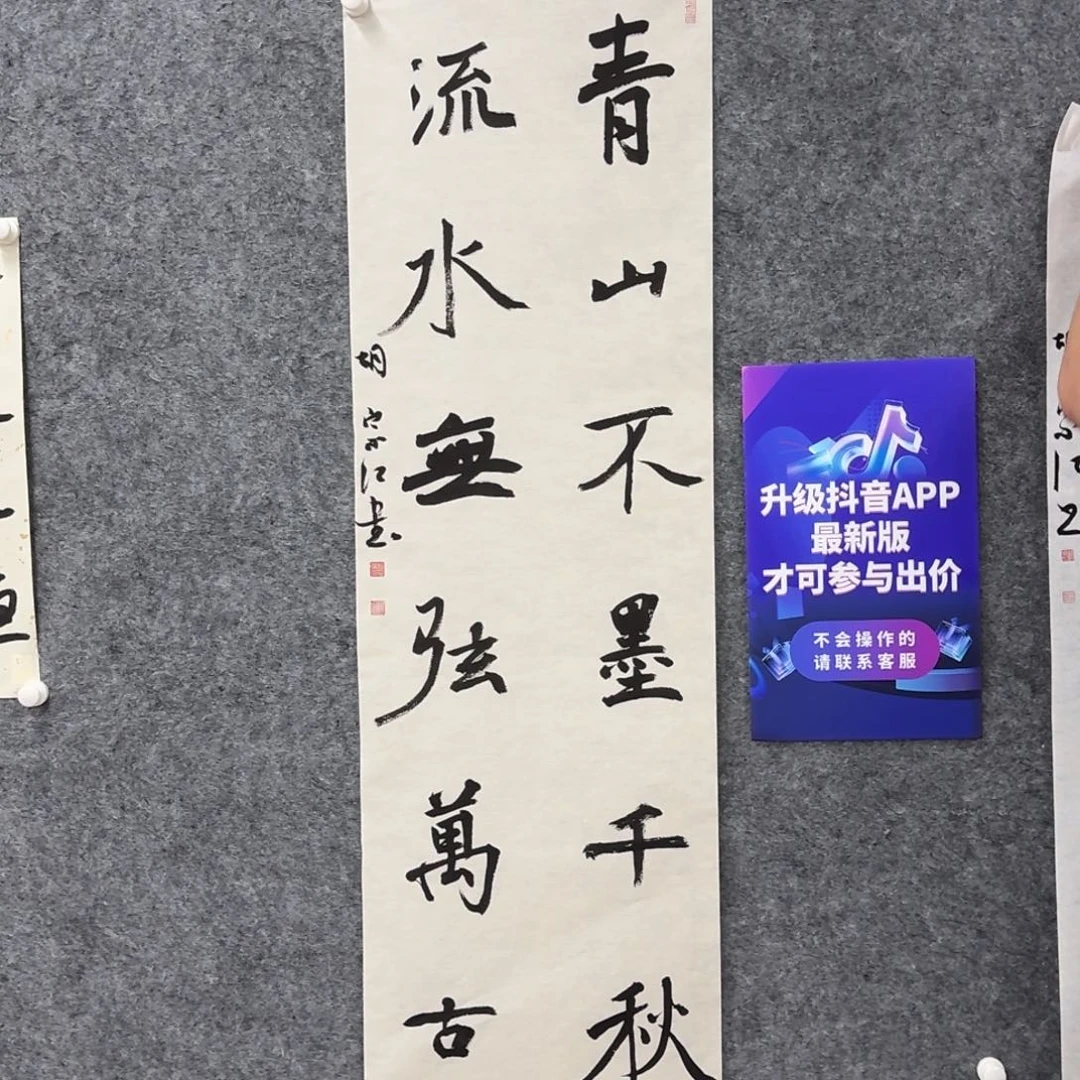 青山不墨千秋
流水無弦萬古
胡宗江書
升级抖音APP
最新版
才可参与出价
不会操作的
请联系客服